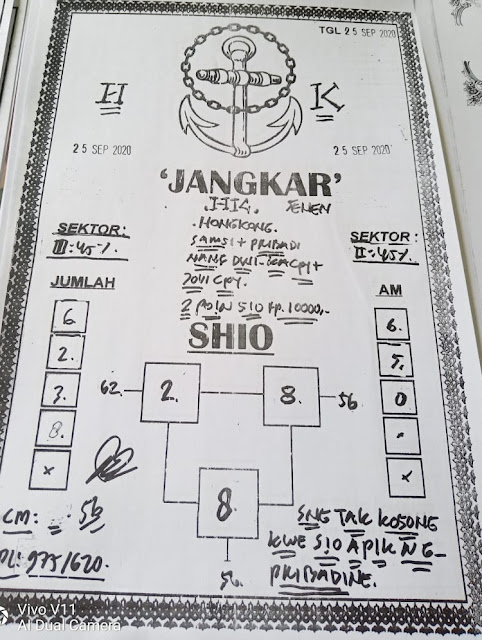 TGL 25 SEP 2020
H K
25 SEP 2020
25 SEP 2020
'JANGKAR'
HK. JENEN
HONGKONG.
SAMSI + PRIBADI
NANG DWI
JOVI CPY.
2 POIN SIO RP. 10000,-
SEKTOR:
III: 45%.
JUMLAH
6
2.
3.
8.
x
SEKTOR:
II: 45%.
AM
6.
5.
0
-
x
SHIO
62. 2. 8. 56
8.
56.
CM: 56
PL: 975/620.
SNG TAK KOSONG
KWE SIO APIK NG-
PRIBADINE.
Vivo V11
AI Dual Camera